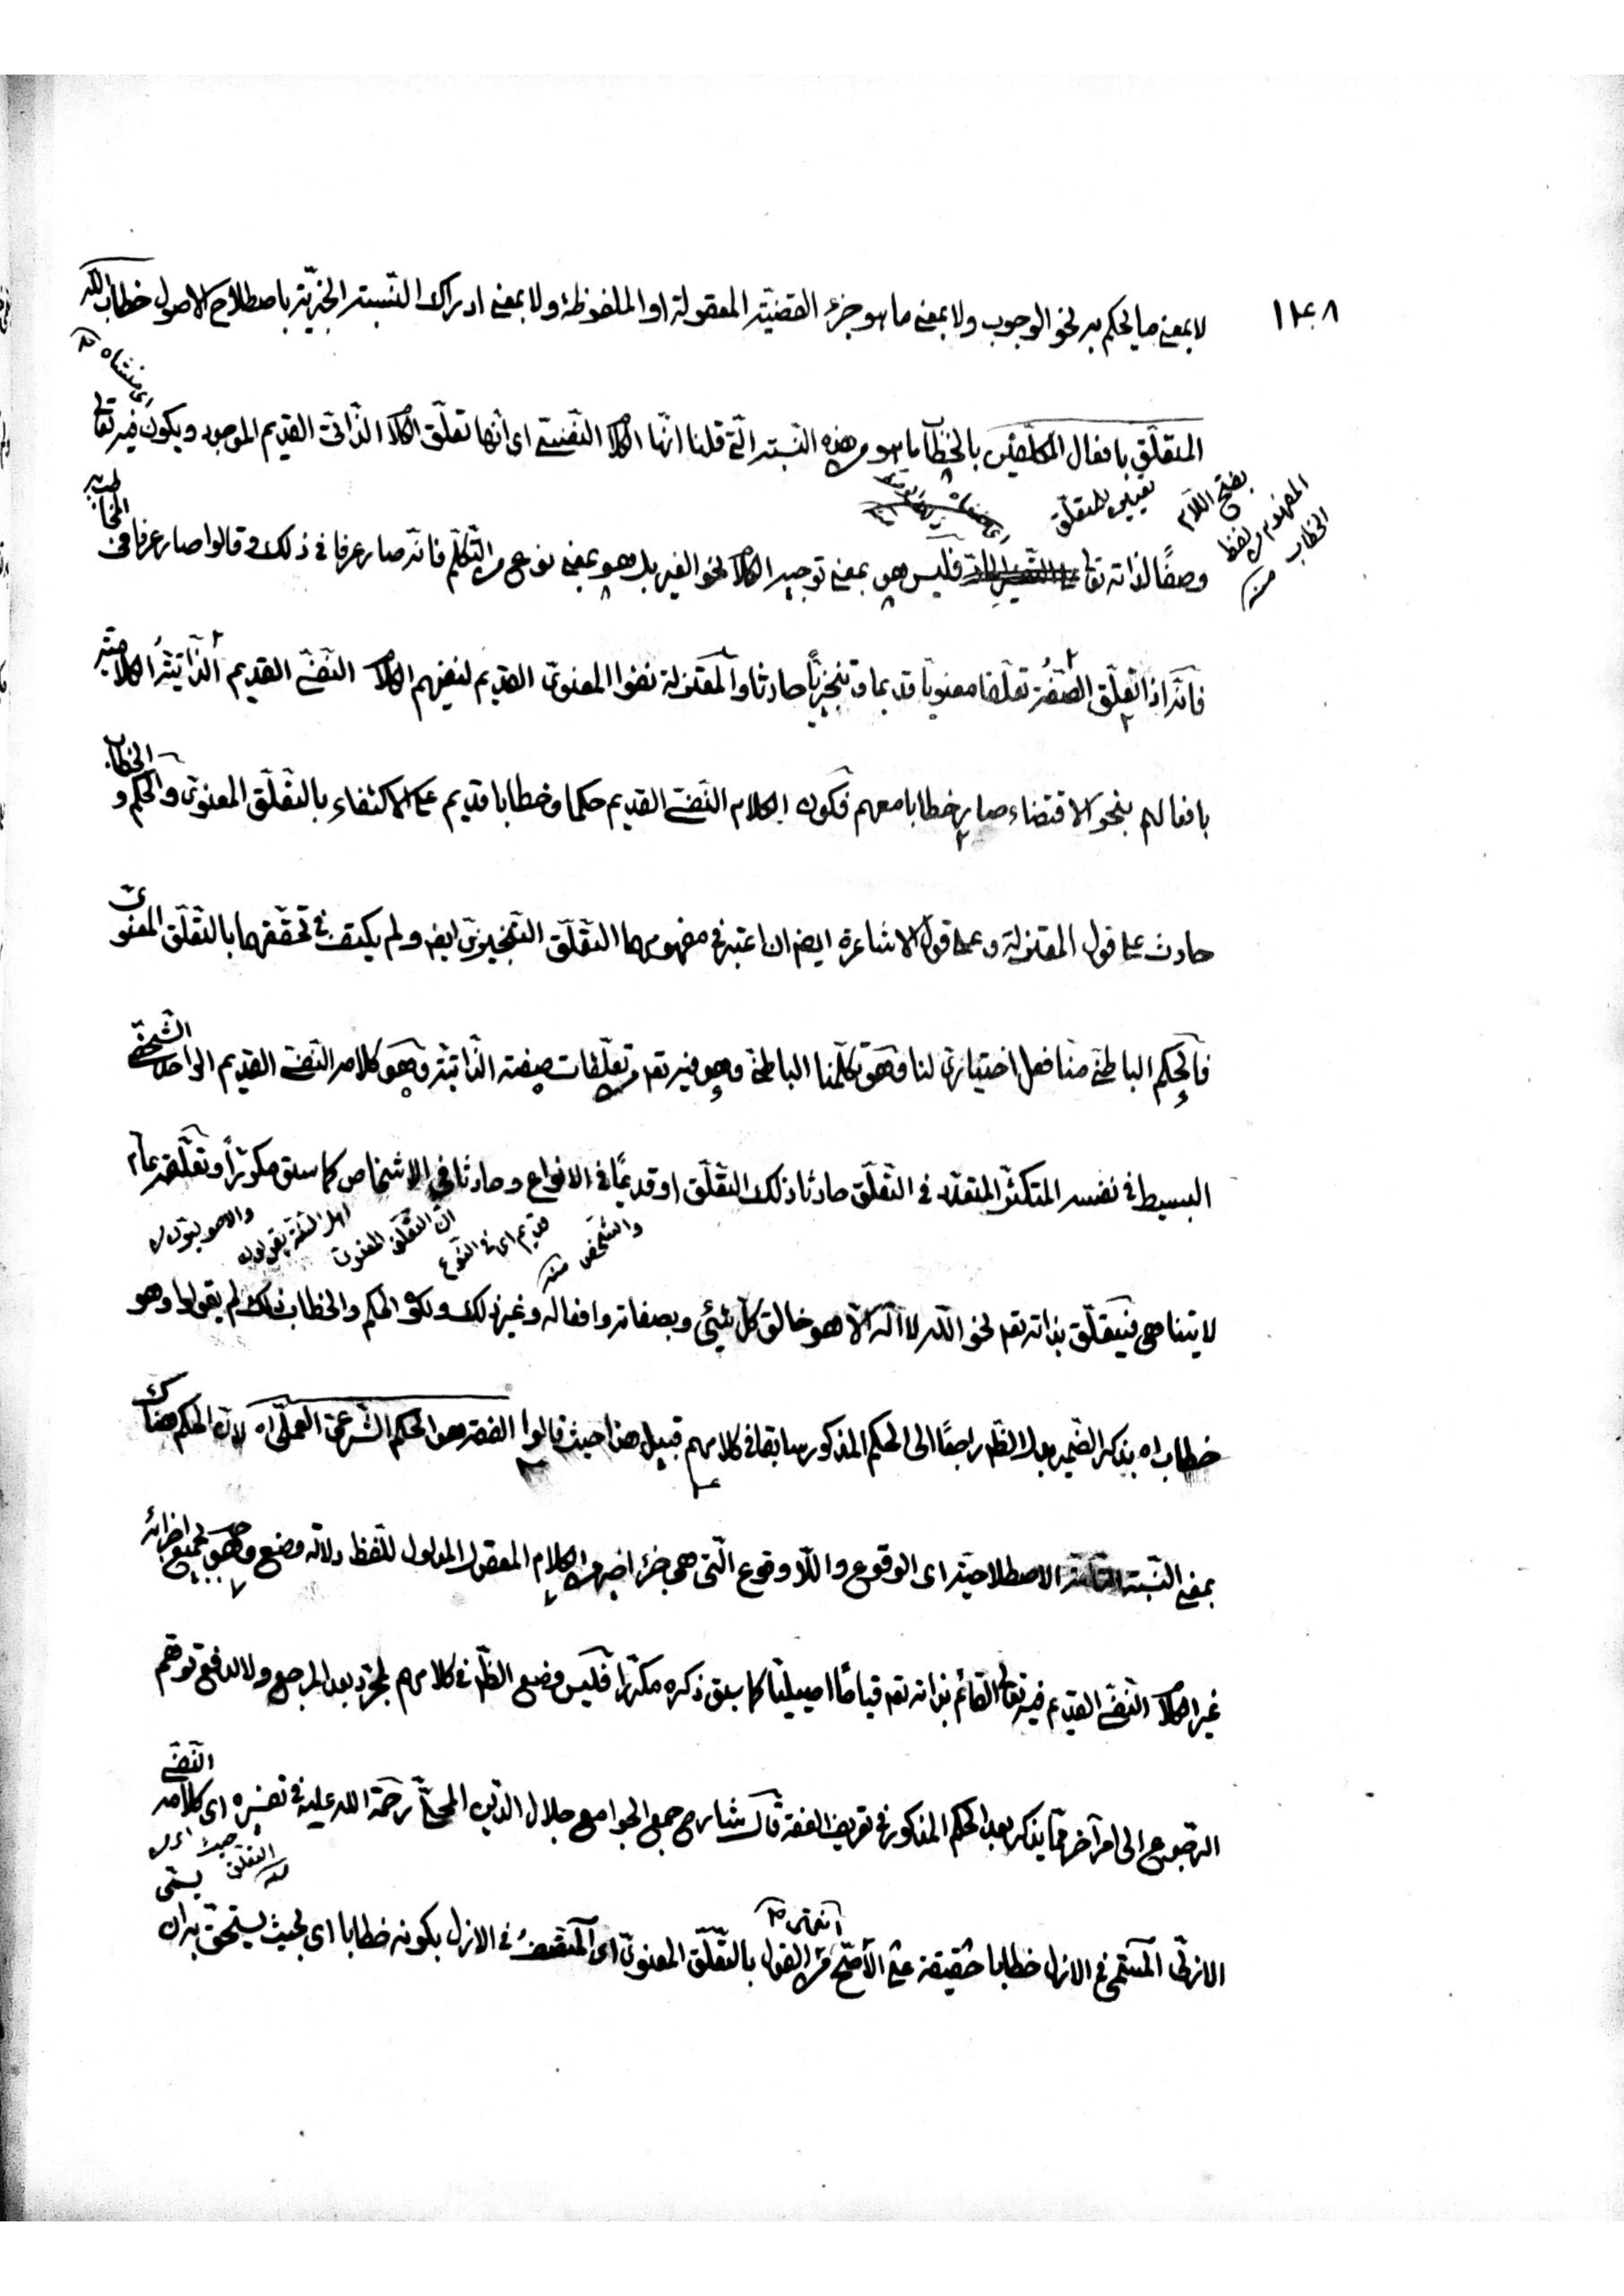 ١٤٨
لا بمعنى ما يحكم به نحو الوجوب ولا بمعنى ما هو جزء القضيّة المعقولة او الملفوظة ولا بمعنى ادراك النّسبة الخبريّة باصطلاح الاصول خطاب الله
اى منشاه
المتعلّق بافعال المكلّفين بالخطاب ما هو من هذه النّسبة الّتى قلنا انّها الكلام النّفسىّ اى انّها تعلّق الكلام الذّاتىّ القديم الموجود ويكون فيه تعالى
بفتح اللّام
تعيين للمتعلّق
المفهوم من لفظ الخطاب منه
وصفًا لذاته تعالى فليس هو بمعنى توجيه الكلام نحو الغير بل هو بمعنى نوع من التّكلّم فانّه صار عرفا فى ذلك وقالوا صار عرفا فى المخاطب به
فانّه اذا تعلّق الصّفة تعلّقا معنويّا قديما وتنجيزيًّا حادثا والمعتزلة نفوا المعنوىّ القديم لنفيهم الكلام النّفسىّ القديم الذّاتيّة الكلاميّة
بافعالهم بنحو الاقتضاء صار خطابا معهم فكون الكلام النّفسىّ القديم حكما وخطابا قديم على الاكتفاء بالتّعلّق المعنوىّ والحكم و الخطاب
حادث على قول المعتزلة وعلى قول الاشاعرة ايضا ان اعتبر فى مفهومهما التّعلّق التّنجيزىّ ايضا ولم يكتف فى تحقّقهما بالتّعلّق المعنوىّ
فالحكم الباطنىّ منّا فعل اختيارىّ لنا وهو تكلّمنا الباطنىّ وهو فيه تعالى من تعلّقات صفته الذّاتيّة وهو كلامه النّفسىّ القديم الواحد الشّخصىّ
البسيط فى نفسه المتكثّر المتعدّد فى التّعلّق حادثا ذلك التّعلّق او قديمًا فى الانواع وحادثا فى الاشخاص كما سبق مكرّرًا وتعلّقه عامّ
اهل السّنّة يقولون
انّ التّعلّق المعنوىّ
قديم اى فى النّوع
والشّخص منه
لا يتناهى فيتعلّق بذاته تعالى نحو الله لا اله الّا هو خالق كلّ شيئ وبصفاته وافعاله وغير ذلك ولكون الحكم والخطاب ذلك لم يقولوا وهو
خطاب اه بذكر الضّمير بدل الظّاهر راجعًا الى الحكم المذكور سابقا فى كلامهم قبيل هذا حيث قالوا الفقه هو الحكم الشّرعىّ العملىّ اه لانّ الحكم هناك
بمعنى النّسبة التّامّة الاصطلاحيّة اى الوقوع واللّا وقوع الّتى هى جزء اخير من الكلام المعقول المدلول للّفظ دلالة وضع وهو بجميع اجزائه
غير الكلام النّفسىّ القديم فيه تعالى القائم بذاته تعالى قيامًا اصيليّا كما سبق ذكره مكرّرا فليس وضع الظّاهر فى كلامهم لمجرّد بعد المرجع ولا لدفع توهّم
الرّجوع الى امر آخر ممّا يذكر بعد الحكم المذكور فى تعريف الفقه قال شارح جمع الجوامع جلال الدّين المحلّىّ رحمة الله عليه فى تفسيره اى كلامه النّفسىّ
الازلىّ المسمّى فى الازل خطابا حقيقة على الاصحّ انتهى من القول بالتّعلّق المعنوىّ اى المتّصف فى الازل بكونه خطابا اى بحيث يستحقّ به ان يسمّى